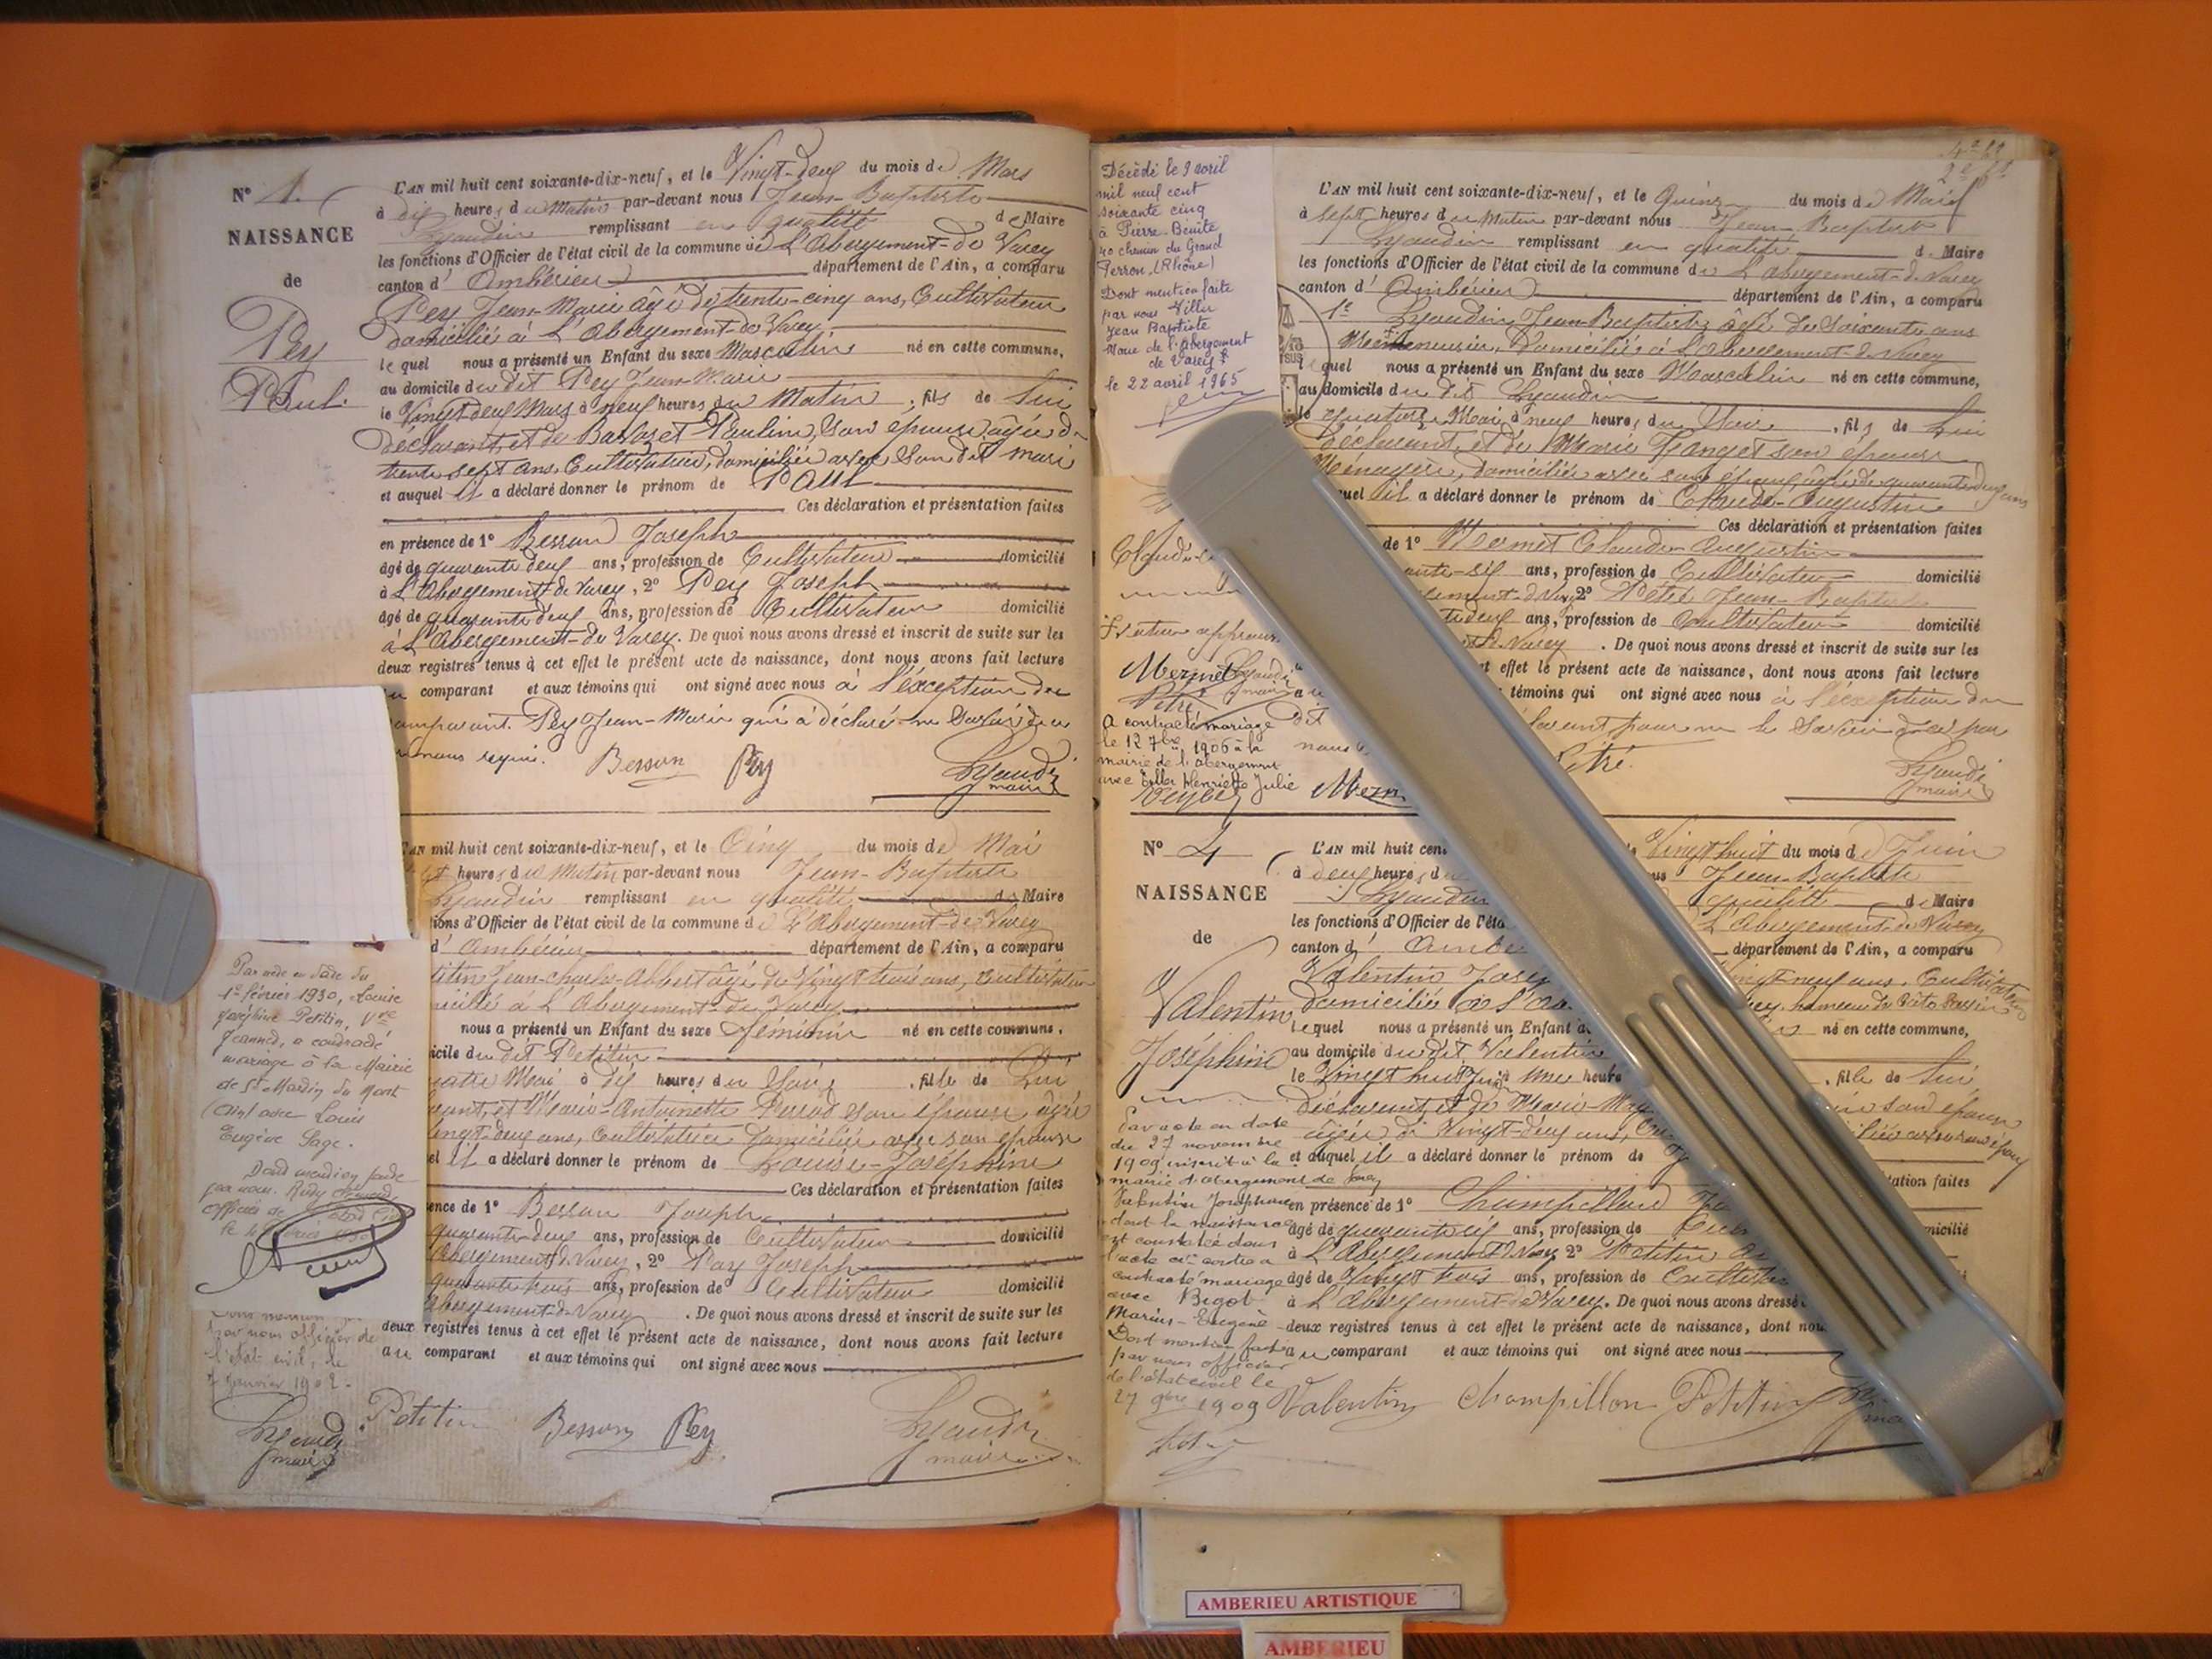 N° 1.
NAISSANCE
de
Pey
Paul.
L'AN mil huit cent soixante-dix-neuf, et le Vingt-deux du mois de Mars
à dix heures du Matin par-devant nous Jean-Baptiste
Lyaudin remplissant en qualité de Maire
les fonctions d'Officier de l'état civil de la commune de L'Abergement-de Varey
canton d' Ambérieu département de l'Ain, a comparu
Pey Jean-Marie âgé de trente-cinq ans, Cultivateur
domicilié à L'Abergement-de Varey,
lequel nous a présenté un Enfant du sexe Masculin né en cette commune,
au domicile du dit Pey Jean-Marie
le Vingt-deux Mars à neuf heures du Matin, fils de Lui
déclarant, et de Pauline, son épouse âgée de
trente sept ans, Cultivatrice, domiciliée avec son dit mari
et auquel il a déclaré donner le prénom de Paul
Ces déclaration et présentation faites
en présence de 1° Besson Joseph
âgé de quarante deux ans, profession de Cultivateur domicilié
à L'Abergement-de Varey, 2° Pey Joseph
âgé de quarante deux ans, profession de Cultivateur domicilié
à L'Abergement-de Varey. De quoi nous avons dressé et inscrit de suite sur les
deux registres tenus à cet effet le présent acte de naissance, dont nous avons fait lecture
au comparant et aux témoins qui ont signé avec nous à l'exception du
comparant. Pey Jean-Marie qui a déclaré ne
requis. Besson Pey Lyaudin
maire
L'AN mil huit cent soixante-dix-neuf, et le Cinq du mois de Mai
heures du Matin par-devant nous Jean-Baptiste
Lyaudin remplissant en qualité de Maire
tions d'Officier de l'état civil de la commune de L'Abergement-de Varey
d' Ambérieu département de l'Ain, a comparu
titin Jean-charles-Albert âgé de Vingt trois ans, Cultivateur
micilié à L'Abergement-de Varey
nous a présenté un Enfant du sexe féminin né en cette commune,
icile du dit Petitin
uatre Mai à dix heures du Soir, fille de Lui
rant, et Marie-Antoinette Perrod son épouse âgée
Vingt-deux ans, Cultivatrice domiciliée avec son époux
el il a déclaré donner le prénom de Louise-Joséphine
Ces déclaration et présentation faites
ence de 1° Besson Joseph
quarante-deux ans, profession de Cultivateur domicilié
Abergement-de Varey, 2° Pey Joseph
quarante trois ans, profession de Cultivateur domicilié
Abergement-de Varey. De quoi nous avons dressé et inscrit de suite sur les
deux registres tenus à cet effet le présent acte de naissance, dont nous avons fait lecture
au comparant et aux témoins qui ont signé avec nous
Petitin Besson Pey Lyaudin
maire
Par acte en date du
1er février 1930, Louise
Joséphine Petitin, Vve
Jeanned, a contracté
mariage à la Mairie
de St Martin du Mont
(Ain) avec Louis
Eugène Sage.
Dont mention faite
par nous
officier de
par nous officier de
l'état civil, le
7 Janvier 1902.
Lyaudin
maire
Décédé le 9 avril
mil neuf cent
soixante cinq
à Pierre-Bénite
40 chemin du Grand
Perron, (Rhône)
Dont mention faite
par nous Villier
Jean Baptiste
Maire de l'Abergement
de Varey
le 22 avril 1965
L'AN mil huit cent soixante-dix-neuf, et le Quinze du mois de Mai
à sept heures du Matin par-devant nous Jean-Baptiste
Lyaudin remplissant en qualité de Maire
les fonctions d'Officier de l'état civil de la commune de L'abergement-de Varey
canton d' Ambérieu département de l'Ain, a comparu
1° Lyaudin Jean-Baptiste âgé de Soixante ans
domicilié à L'abergement-de Varey
lequel nous a présenté un Enfant du sexe Masculin né en cette commune,
au domicile du dit Lyaudin
le quatorze Mai à neuf heures du Soir, fils de Lui
déclarant, et de Marie son épouse
Ménagère, domiciliée avec son époux âgée de quarante-deux ans
quel il a déclaré donner le prénom de Claude-Augustin
Ces déclaration et présentation faites
de 1° Mermet Claude-Augustin
ante-six ans, profession de Cultivateur domicilié
gement-de Varey 2° Pétré Jean-Baptiste
te deux ans, profession de Cultivateur domicilié
de Varey. De quoi nous avons dressé et inscrit de suite sur les
et effet le présent acte de naissance, dont nous avons fait lecture
témoins qui ont signé avec nous à l'exception du
pour ne le Savoir
Pétré. Lyaudin
maire
Mermet Lyaudin
Pétré maire
A contracté mariage
le 12 7bre 1906 à la
mairie de l'abergement
avec Henriette Julie
N° 4
NAISSANCE
de
Valentin
Joséphine
L'AN mil huit cen Vingt huit du mois de Juin
à deux heures d Jean-Baptiste
Lyaudin qualité de Maire
les fonctions d'Officier de l'éta L'abergement-de Varey
canton d' Ambé département de l'Ain, a comparu
Valentin Jose ingt-neuf ans, Cultivateur
domicilié à L'ab rey, hameau de
lequel nous a présenté un Enfant d né en cette commune,
au domicile du dit Valentin
le Vingt huit Juin à Une heure , fille de Lui
déclarant, et de Marie son épouse
âgée de Vingt-deux ans,
et auquel il a déclaré donner le prénom de
tation faites
en présence de 1° Champillon
âgé de quarante six ans, profession de Cul micilié
à L'Abergement de Varey 2° Petitin
âgé de Vingt trois ans, profession de Cultiva
à L'Abergement de Varey. De quoi nous avons dressé
deux registres tenus à cet effet le présent acte de naissance, dont nou
au comparant et aux témoins qui ont signé avec nous
Valentin Champillon Petitin
Par acte en date
du 27 novembre
1909 inscrit à la
mairie d'abergement de Varey
Valentin Joséphine
dont la naissance
est constatée dans
l'acte ci-contre a
contracté mariage
avec Bigot
Marius-Eugène
Dont mention faite
par nous officier
de l'état civil le
27 9bre 1909
AMBERIEU ARTISTIQUE
AMBERIEU